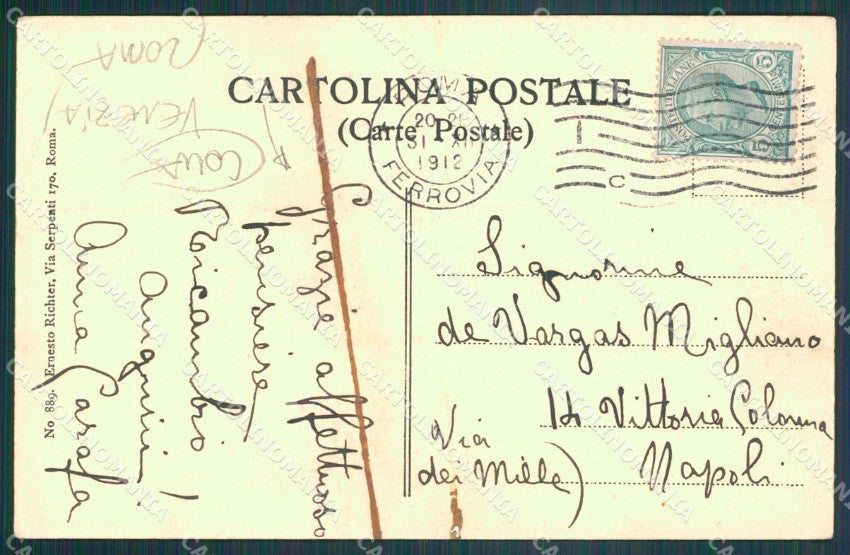 CARTOLINA POSTALE
(Carte Postale)
ROMA
VENEZIA
ROMA
20-21
31 XII
1912
FERROVIA
C
POSTE ITALIANE
CENTESIMI
5 5
Grazie affettuoso
pensiero
Ricambio
auguri!
Anna Carafa
Signorine
de Vargas Migliano
14 Vittoria Colonna
Via
dei Mille)
Napoli
No. 889. Ernesto Richter, Via Serpenti 170, Roma.
CARTOLINOMANIA